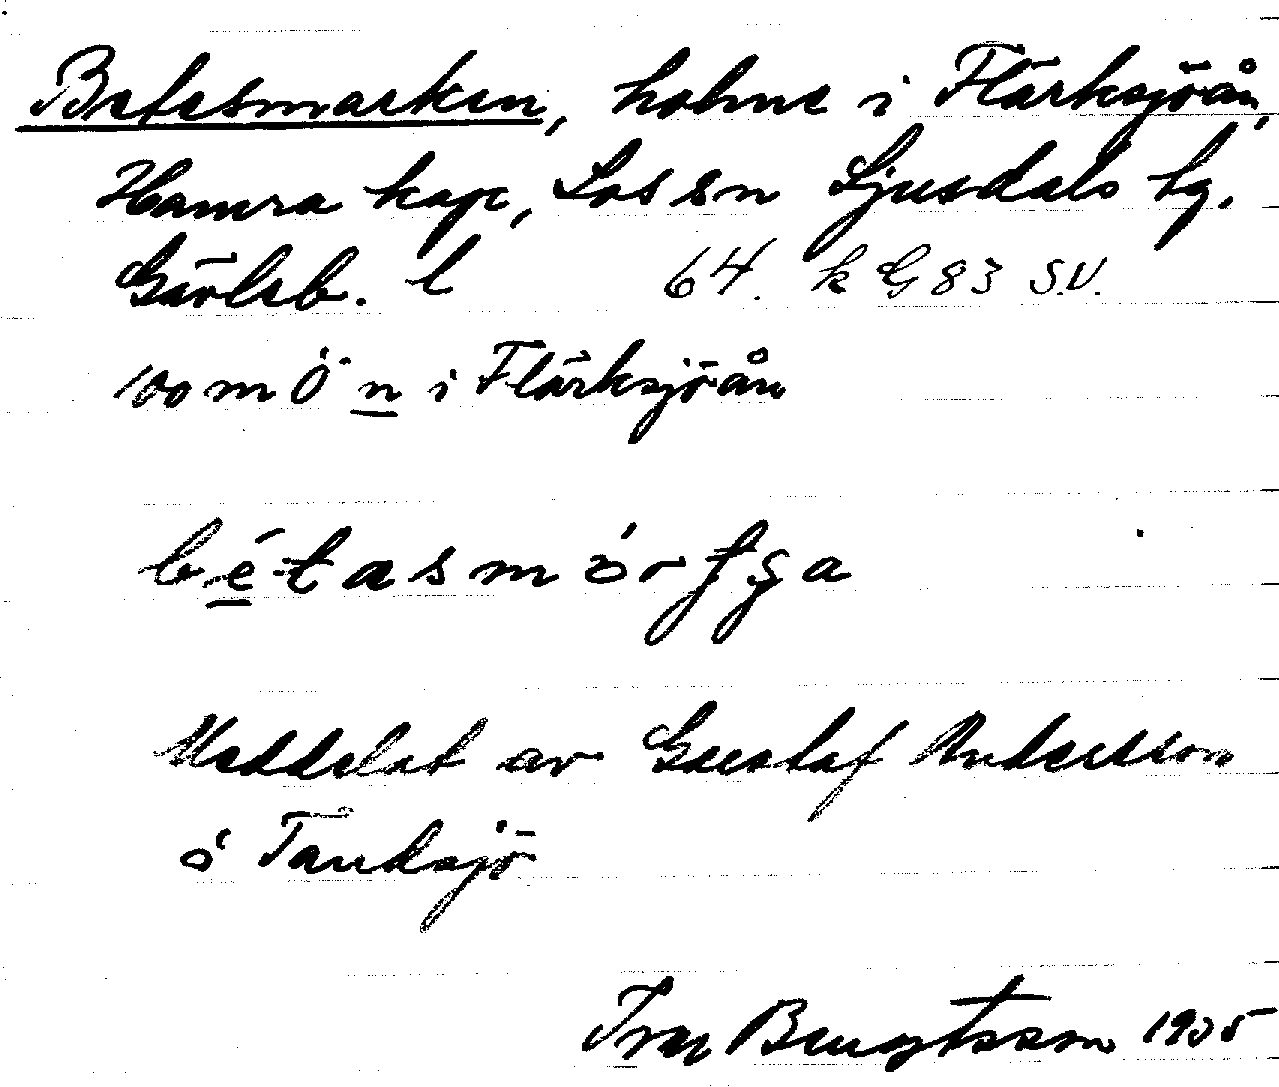 Betesmarken, holme i Flärksjöån,
Hamra kap, Los sn Ljusdals tg.
Gävleb. l 64. k G 83 S.V.
100 m Ö n i Flärksjöån
Meddelat av Gustaf Andersson
å Tandsjö
Ivar Bengtsson 1935